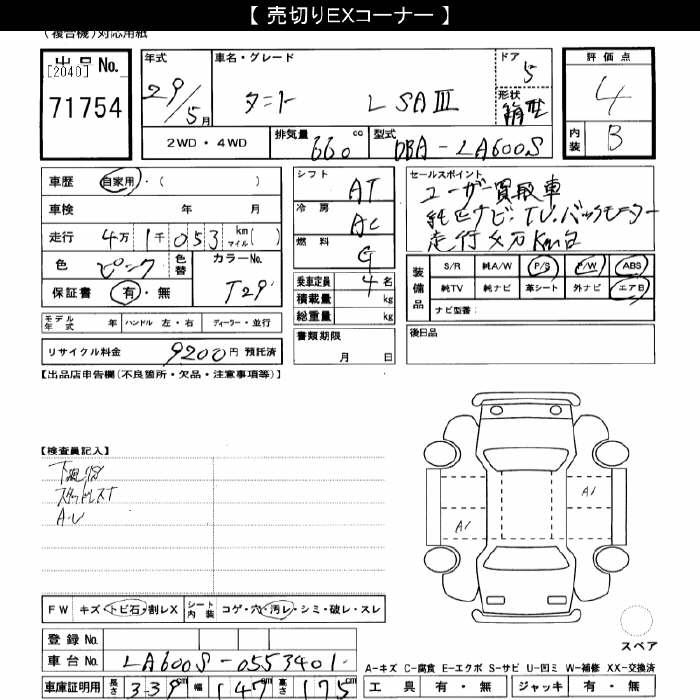 【 売切りEXコーナー 】
(複合機)対応用紙
出品 No.
[2040]
71754
年式 車名・グレード ドア 評価点
29/5月 タント L SAⅢ 5
形状 箱型
4
2WD・4WD 排気量 660 cc 型式 DBA-LA600S
内装 B
車歴 自家用・( )
車検 年 月
走行 4万 1千 053 km マイル( )
色 ピンク 色替 カラーNo. T29
保証書 有・無
モデル年式 年 ハンドル 左・右 ディーラー・並行
リサイクル料金 9200円 預託済
シフト AT
冷房 AC
燃料 G
乗車定員 4名
積載量 kg
総重量 kg
書類期限
月 日
セールスポイント
ユーザー買取車
純正ナビ・TV・バックモニター
走行4万Km台
装備品 S/R 純A/W P/S P/W ABS
純TV 純ナビ 革シート 外ナビ エアB
ナビ型番:
後日品
【出品店申告欄(不良箇所・欠品・注意事項等)】
【検査員記入】
スタッドレスT
A・U
A1
A1
FW キズ・トビ石・割レX シート内装 コゲ・穴・汚レ・シミ・破レ・スレ
登録 No.
車台 No. LA600S-0553401
車庫証明用 長さ 339cm 幅 147cm 高さ 175cm
スペア
A-キズ C-腐食 E-エクボ S-サビ U-凹ミ W-補修 XX-交換済
工具 有・無 ジャッキ 有・無